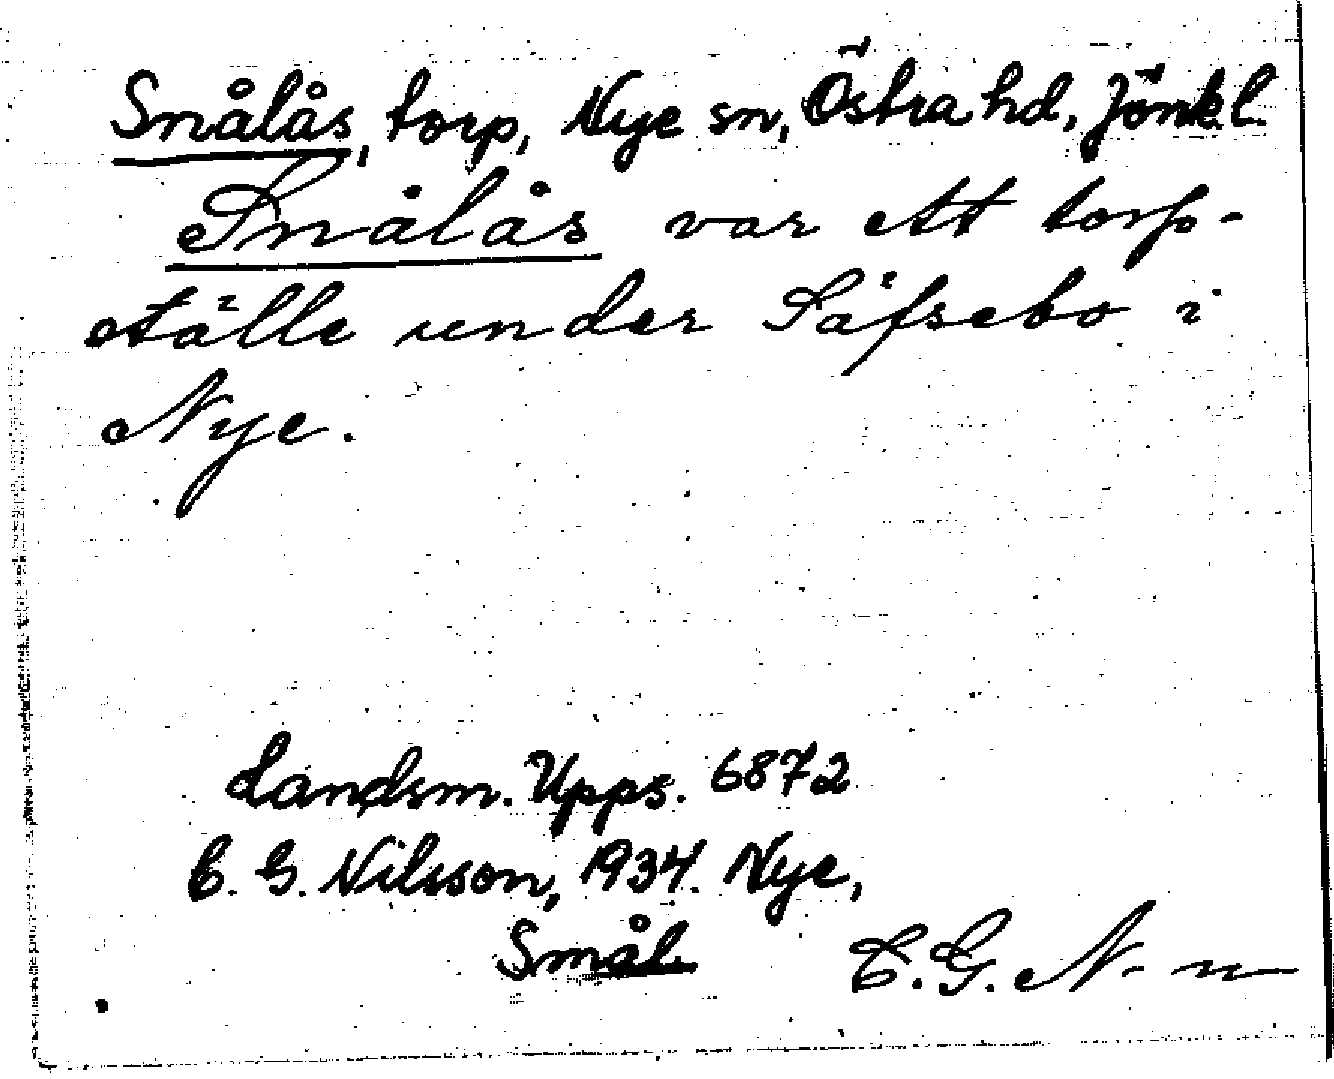 Snålås, torp, Nye sn, Östra hd, Jönk.l.
Snålås var ett torp-
ställe under Säfsebo i
Nye.
Landsm. Upps. 6872
C. G. Nilsson, 1934. Nye,
Smål.
C. G. N-n